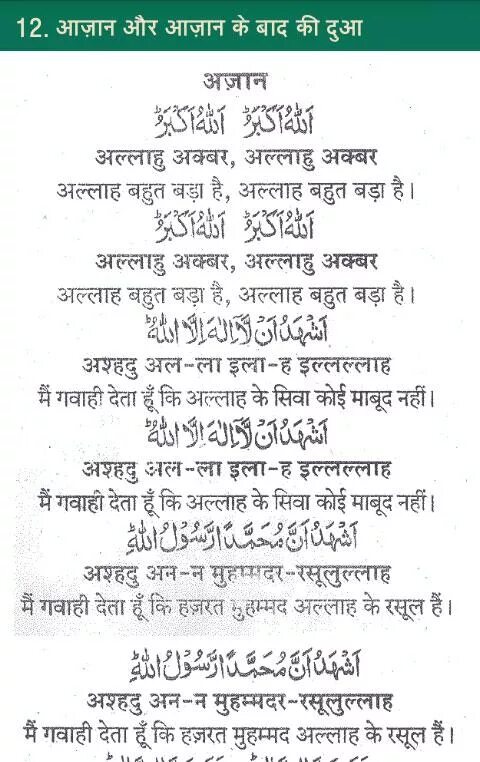 12. आज़ान और आज़ान के बाद की दुआ
अज़ान
اَللّٰهُ اَكْبَرُ اَللّٰهُ اَكْبَرُ
अल्लाहु अक्बर, अल्लाहु अक्बर
अल्लाह बहुत बड़ा है, अल्लाह बहुत बड़ा है।
اَللّٰهُ اَكْبَرُ اَللّٰهُ اَكْبَرُ
अल्लाहु अक्बर, अल्लाहु अक्बर
अल्लाह बहुत बड़ा है, अल्लाह बहुत बड़ा है।
اَشْهَدُ اَنْ لَّآ اِلٰهَ اِلَّا اللّٰهُ
अश्हदु अल-ला इला-ह इल्लल्लाह
मैं गवाही देता हूँ कि अल्लाह के सिवा कोई माबूद नहीं।
اَشْهَدُ اَنْ لَّآ اِلٰهَ اِلَّا اللّٰهُ
अश्हदु अल-ला इला-ह इल्लल्लाह
मैं गवाही देता हूँ कि अल्लाह के सिवा कोई माबूद नहीं।
اَشْهَدُ اَنَّ مُحَمَّدًا رَّسُوْلُ اللّٰهِ
अश्हदु अन-न मुहम्मदर-रसूलुल्लाह
मैं गवाही देता हूँ कि हज़रत मुहम्मद अल्लाह के रसूल हैं।
اَشْهَدُ اَنَّ مُحَمَّدًا رَّسُوْلُ اللّٰهِ
अश्हदु अन-न मुहम्मदर-रसूलुल्लाह
मैं गवाही देता हूँ कि हज़रत मुहम्मद अल्लाह के रसूल हैं।